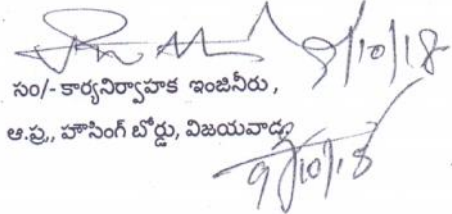 9/10/18
సం/- కార్యనిర్వాహక ఇంజినీరు,
ఆ.ప్ర., హౌసింగ్ బోర్డు, విజయవాడ.
9/10/18